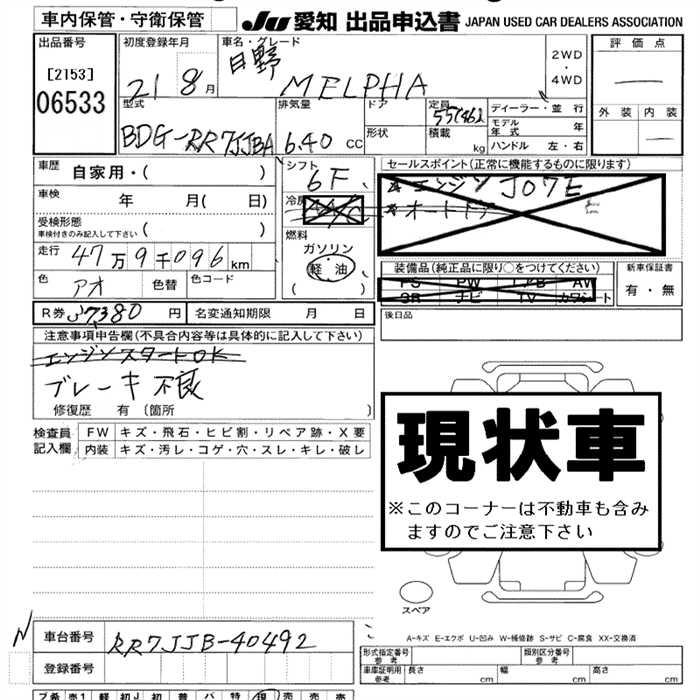 車内保管・守衛保管
JU 愛知 出品申込書 JAPAN USED CAR DEALERS ASSOCIATION
出品番号 初度登録年月 車名・グレード 評価点
[2153] 21 8月 日野 MELPHA 2WD・4WD
06533
型式 排気量 ドア 定員 ディーラー・並行 外装 内装
BDG-RR7JJBA 6.40 CC 形状 積載 kg モデル年式 年
ハンドル 左・右
車歴 自家用・( ) シフト セールスポイント(正常に機能するものに限ります)
6F エンジン J07E
車検 年 月( 日) 冷房 オートドア
受検形態 ( )
車検付きのみ記入して下さい
燃料
走行 47万9千096km ガソリン
軽・油
装備品(純正品に限り○をつけてください) 新車保証書
色 アオ 色替 色コード PS PW エアB AW 有・無
SR ナビ TV カワシート
R券 7380円 名変通知期限 月 日 後日品
注意事項申告欄(不具合内容等は具体的に記入して下さい)
エンジンスタートOK
ブレーキ不良
修復歴 有(箇所 )
検査員 FW キズ・飛石・ヒビ割・リペア跡・X要
記入欄 内装 キズ・汚レ・コゲ・穴・スレ・キレ・破レ
現状車
※このコーナーは不動車も含み
ますのでご注意下さい
スペア
N
車台番号 RR7JJB-40492
A-キズ E-エクボ U-凹み W-補修跡 S-サビ C-腐食 XX-交換済
登録番号
形式指定番号 参考 類別区分番号 参考
車庫証明用 参考 長さ cm 幅 cm 高さ cm